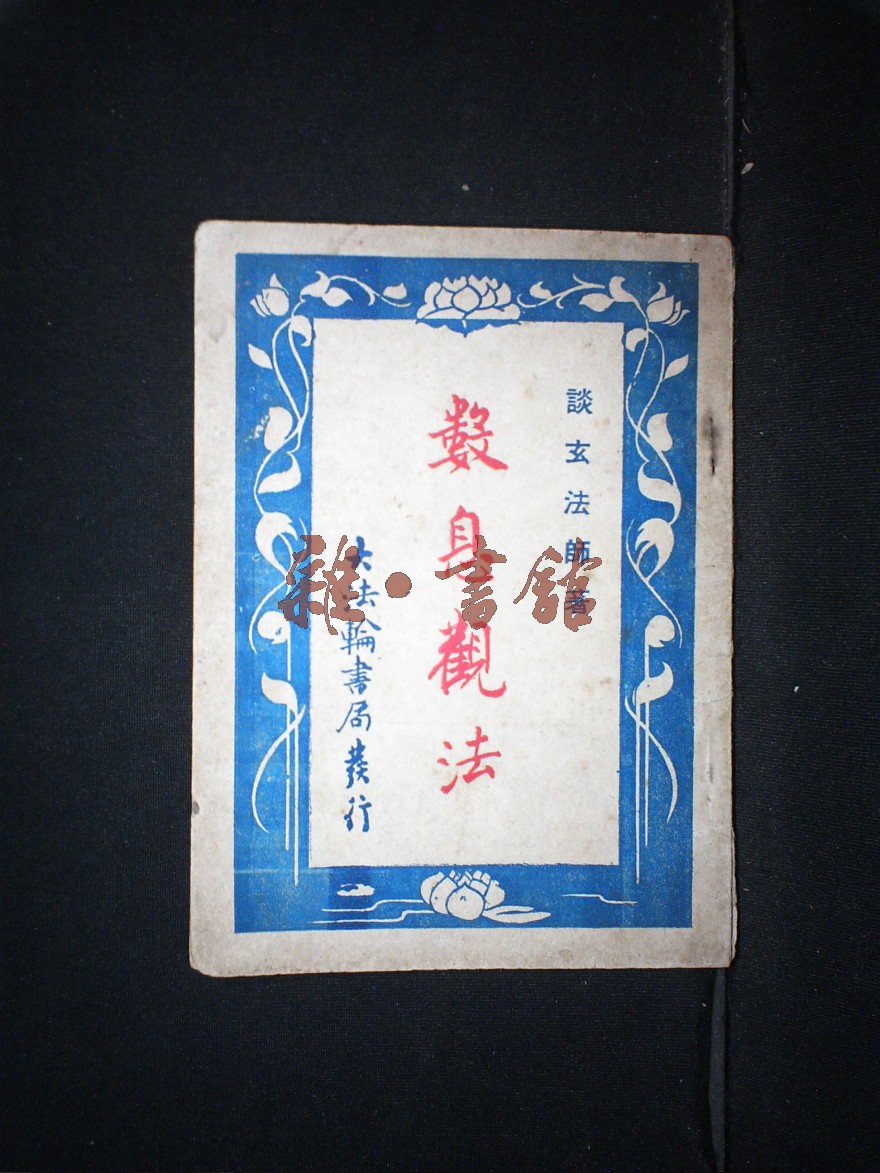 談玄法師著
數息觀法
大法輪書局發行
雜·書館